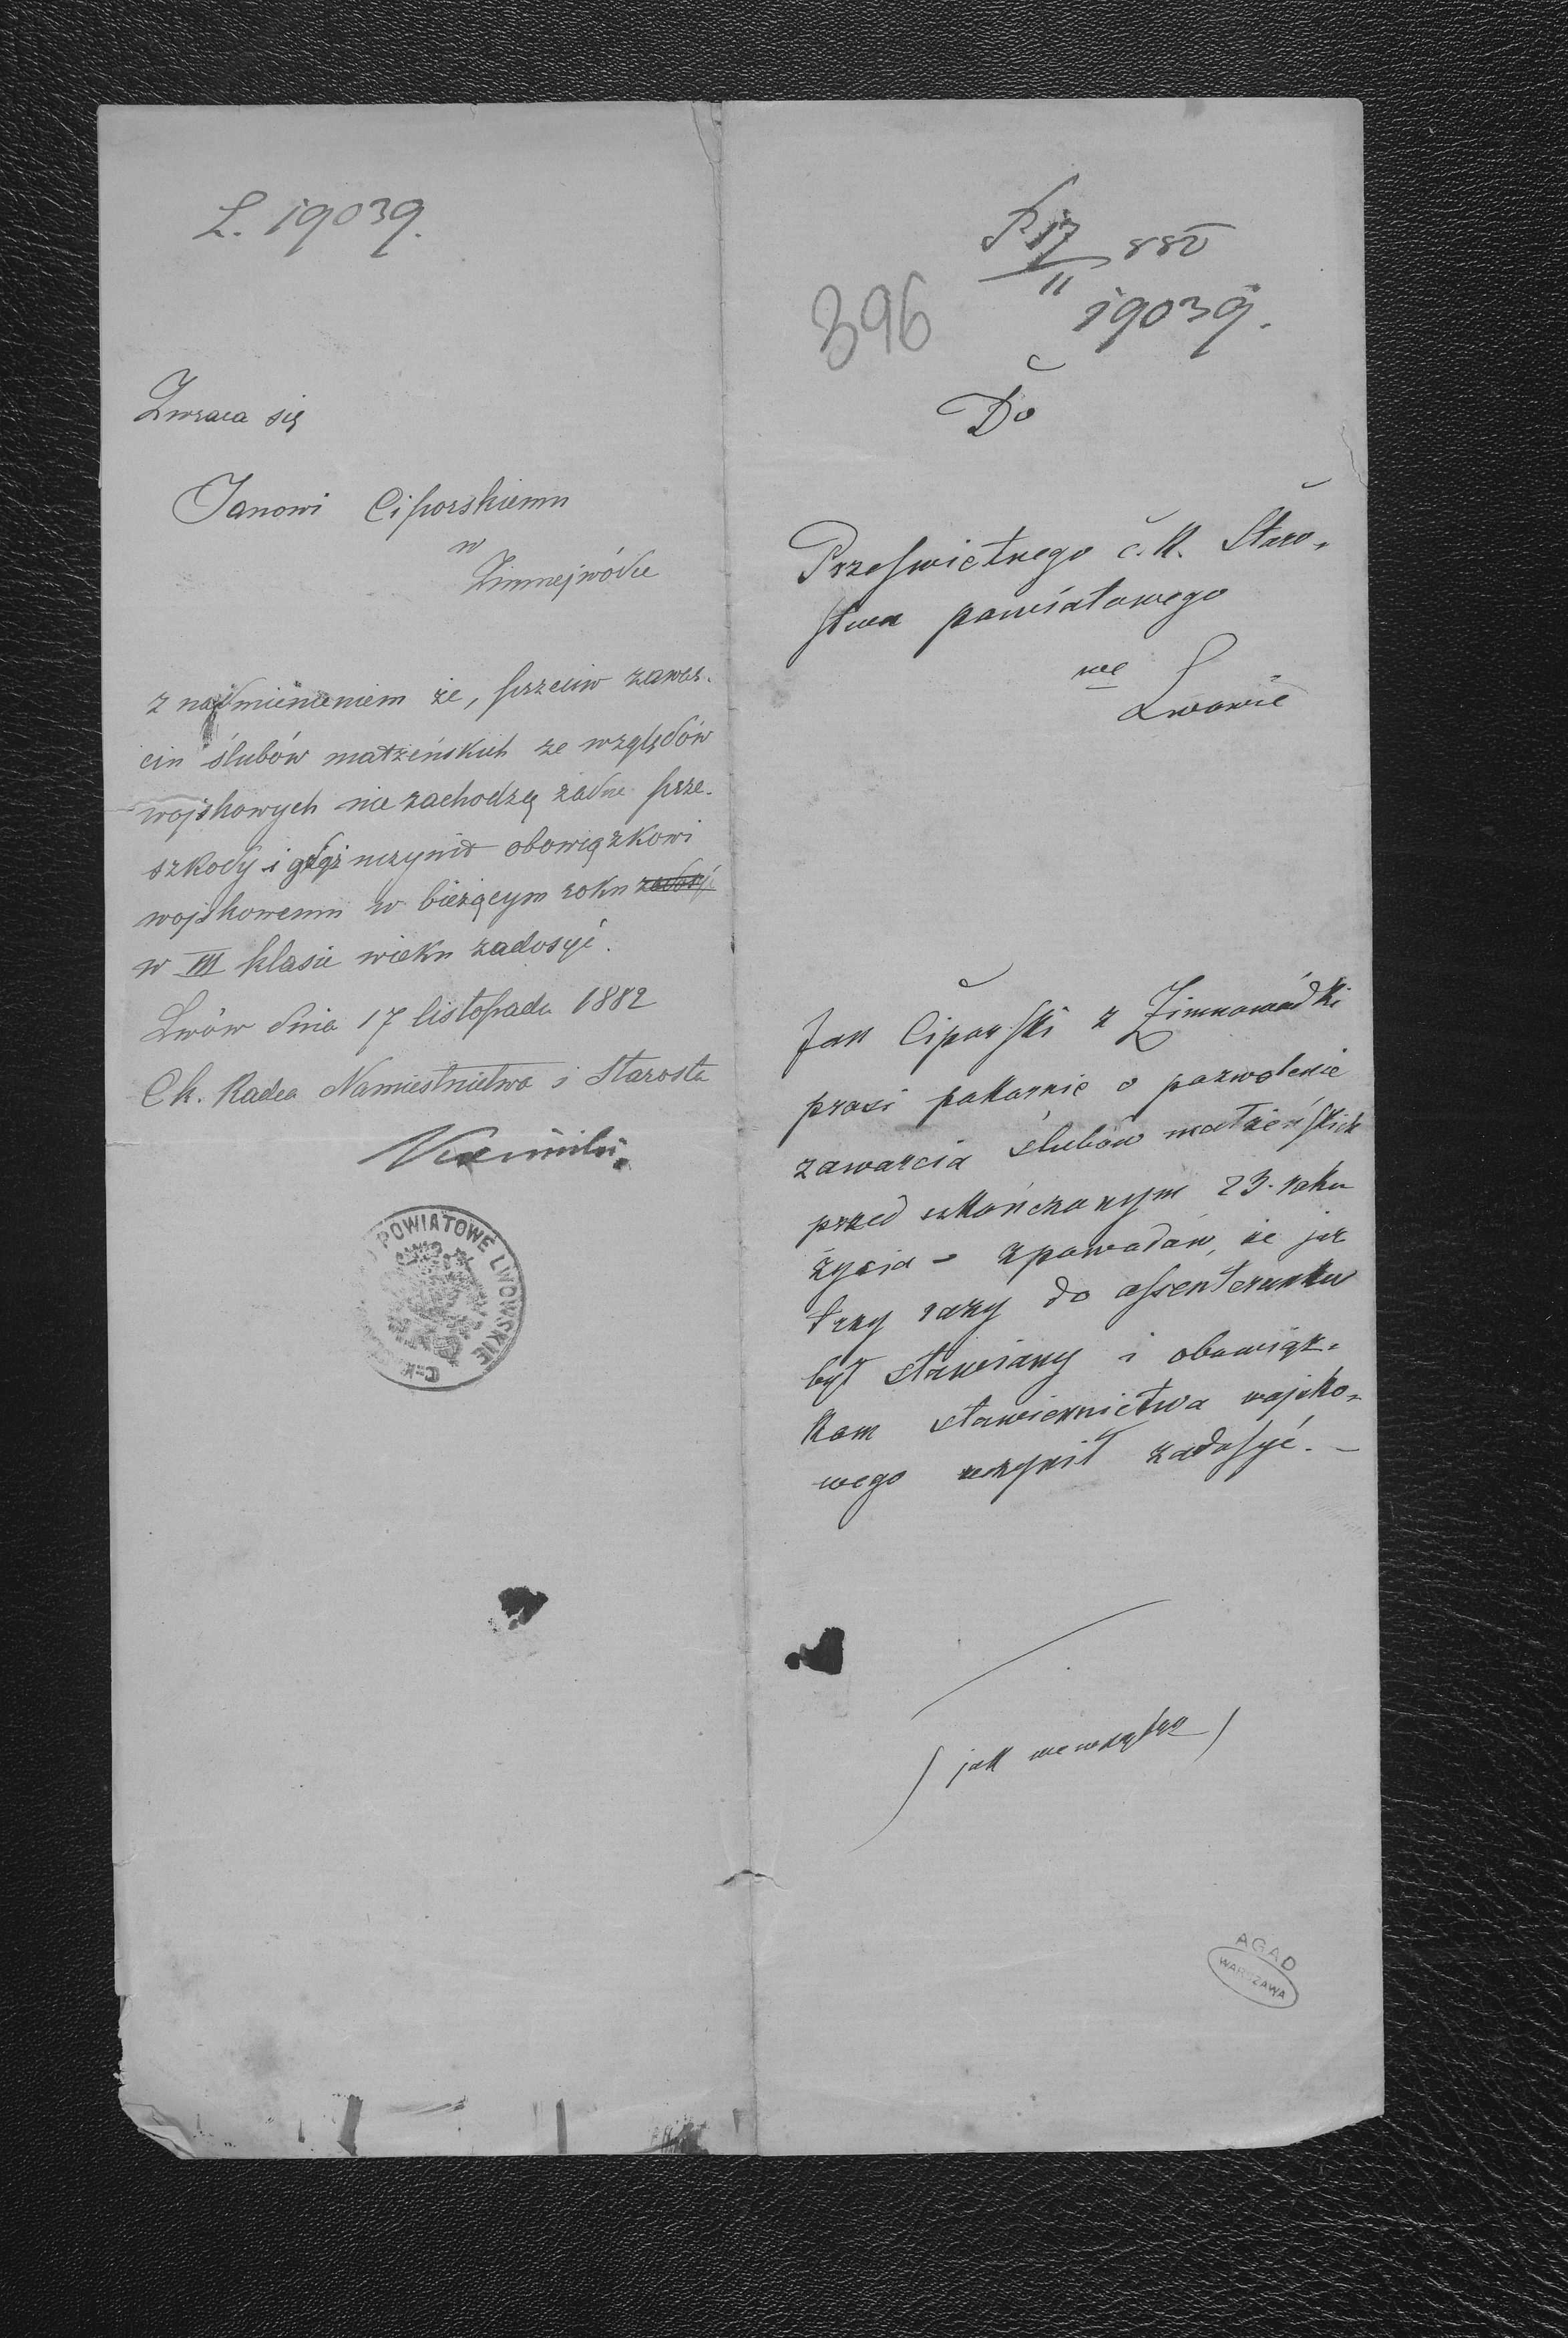 L. 19039.
Zwraca się
Janowi Ciporskiemu
w
Zimnejwódce
z nadmienieniem że, przeciw zawar-
ciu ślubów małżeńskich ze względów
wojskowych nie zachodzą żadne prze-
szkody i gdyż uczynił obowiązkowi
wojskowemu w bieżącym roku zadosyć
w III klasie wieku zadosyć.
Lwów dnia 17 listopada 1882
C k. Radca Namiestnictwa i Starosta
POWIATOWE LWOWSKIE
C-K.
P. 17/11 882
396
19039.
Do
Prześwietnego c. k. Staro-
stwa powiatowego
we
Lwowie
Jan Ciporski z Zimnowódki
prosi pokornie o pozwolenie
zawarcia ślubów małżeńskich
przed ukończonym 23. roku
życia – z powodów, że już
trzy razy do assenterunku
był stawiany i obowiąz-
kom stawiennictwa wojsko-
wego uczynił zadosyć. –
( jak wewnątrz )
AGAD
WARSZAWA